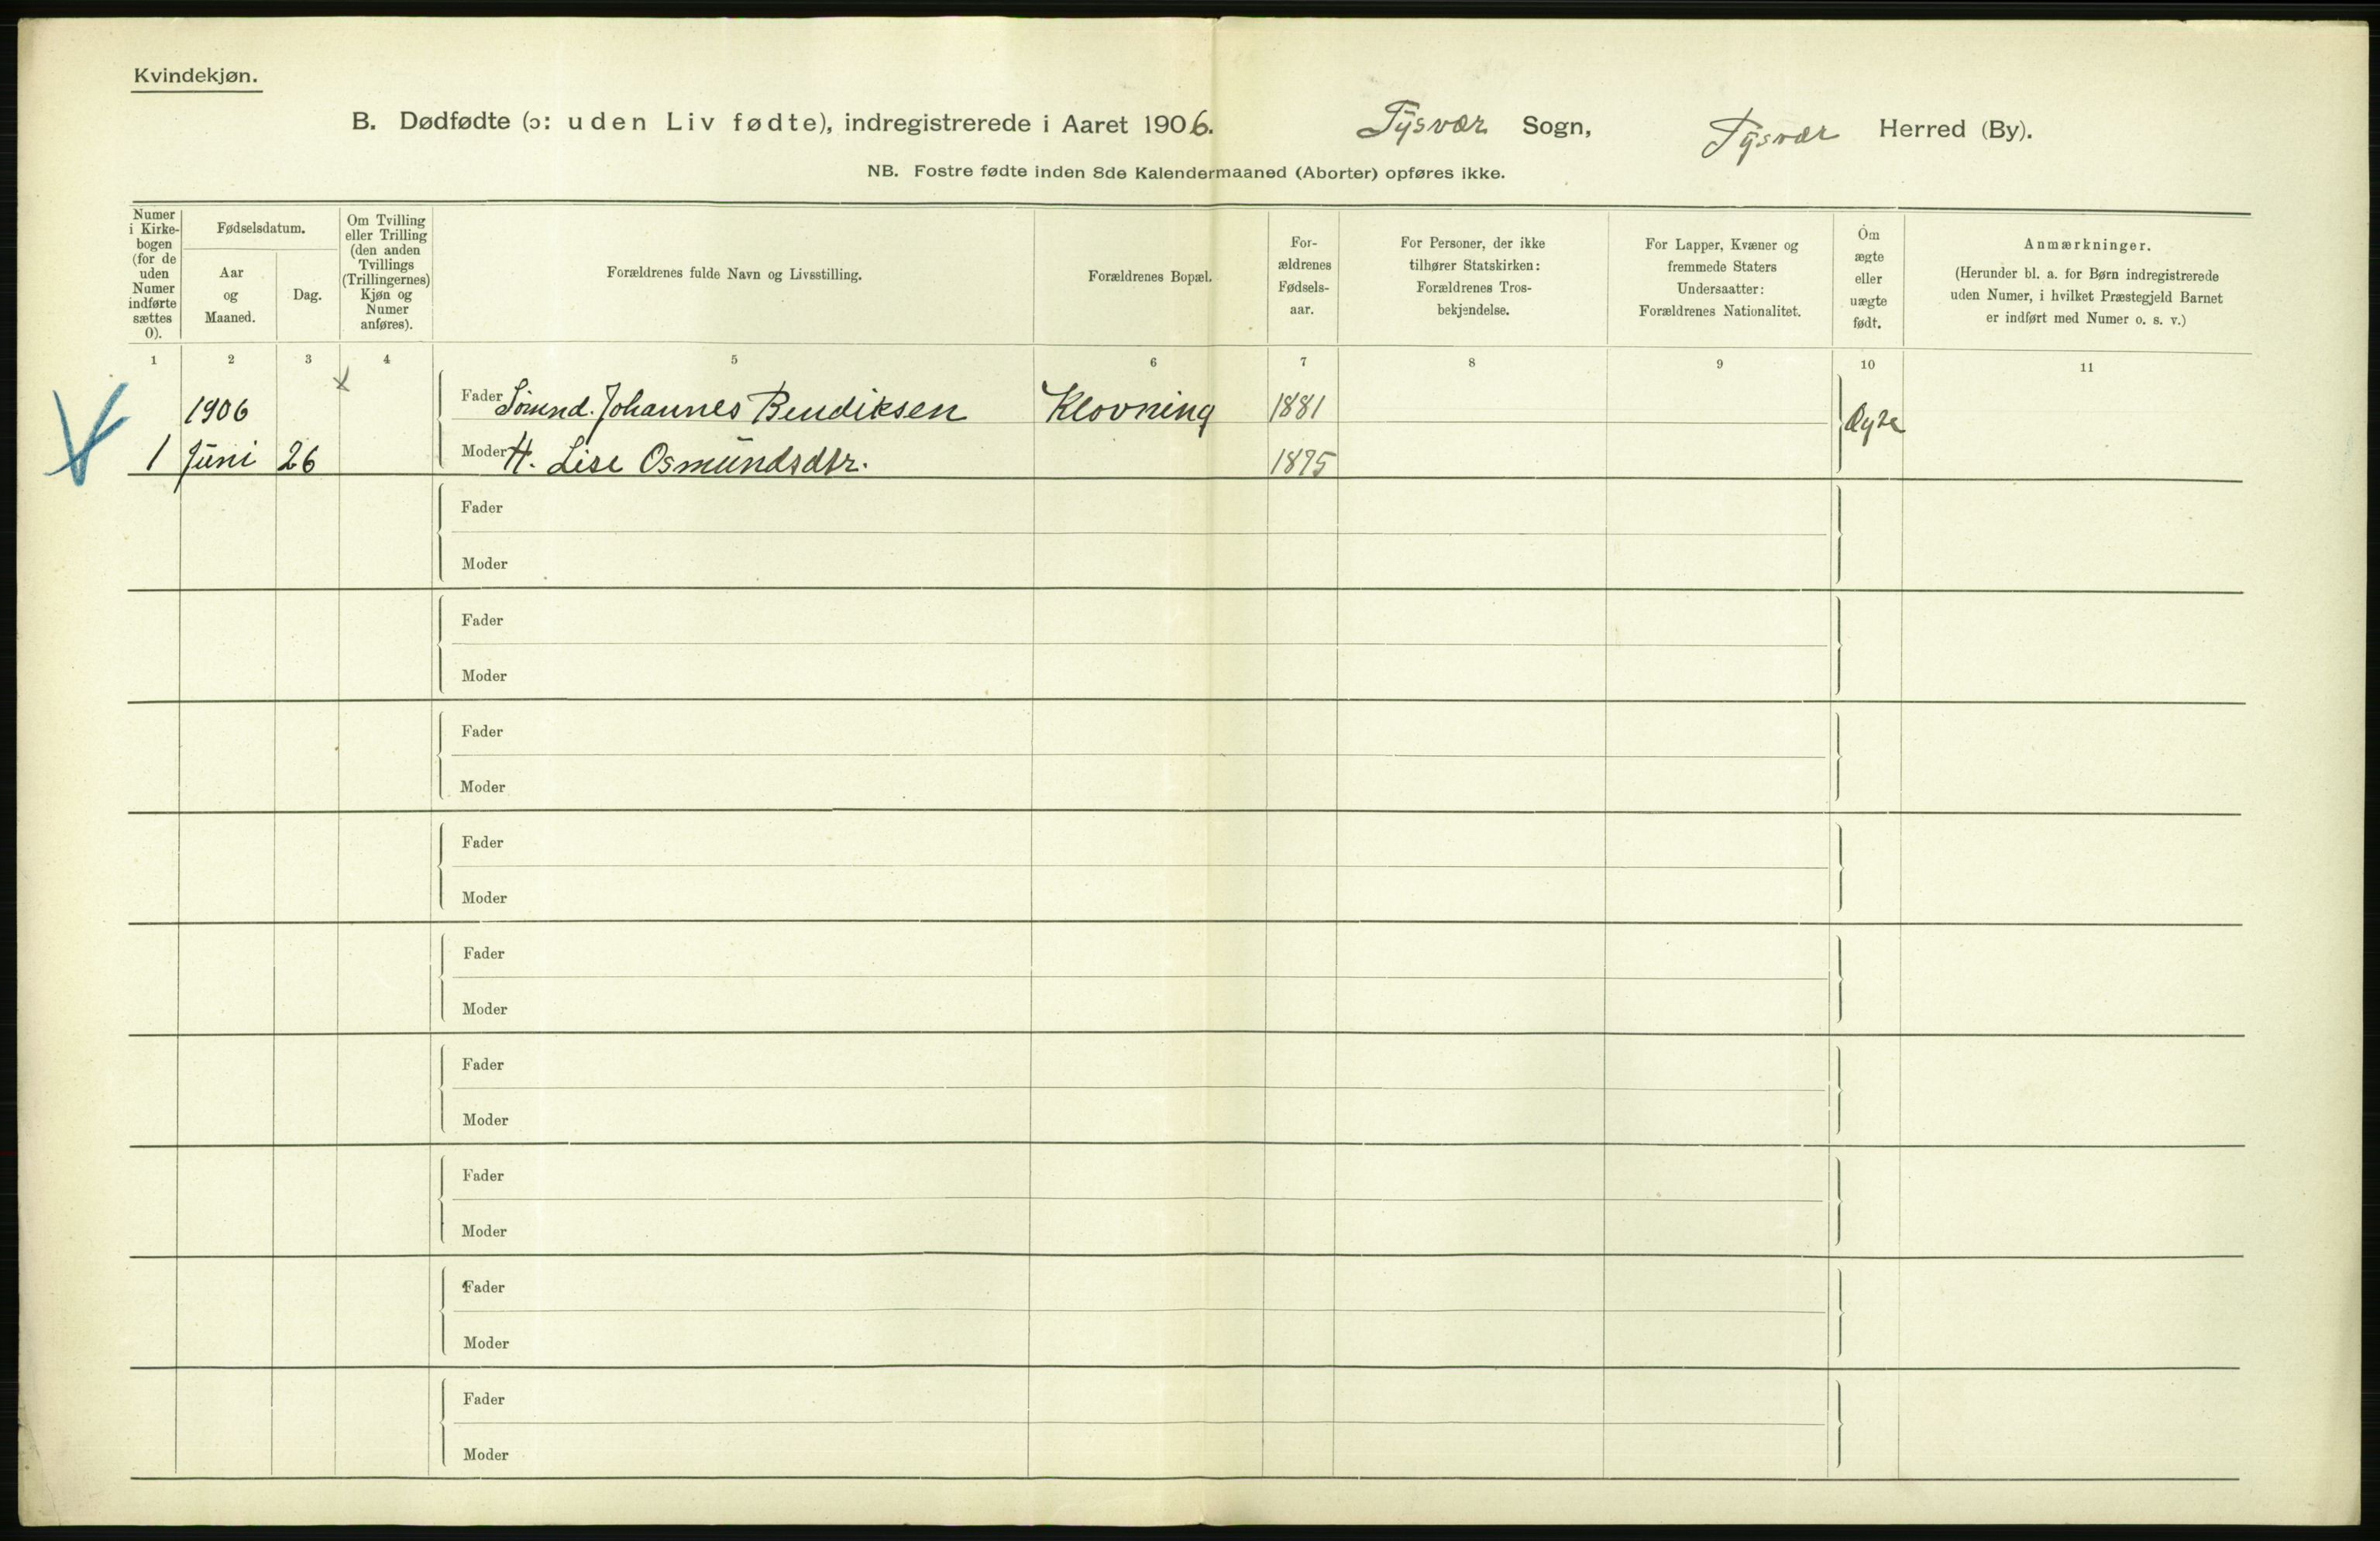 Kvindekjøn.
B. Dødfødte (ɔ: uden Liv fødte), indregistrerede i Aaret 1906. Tysvær Sogn, Tysvær Herred (By).
NB. Fostre fødte inden 8de Kalendermaaned (Aborter) opføres ikke.
Numer
i Kirke-
bogen
(for de
uden
Numer
indførte
sættes
0).
Fødselsdatum.
Aar
og
Maaned.
Dag.
Om Tvilling
eller Trilling
(den anden
Tvillings
(Trillingernes)
Kjøn og
Numer
anføres).
Forældrenes fulde Navn og Livsstilling.
Forældrenes Bopæl.
For-
ældrenes
Fødsels-
aar.
For Personer, der ikke
tilhører Statskirken:
Forældrenes Tros-
bekjendelse.
For Lapper, Kvæner og
fremmede Staters
Undersaatter:
Forældrenes Nationalitet.
Om
ægte
eller
uægte
født.
Anmærkninger.
(Herunder bl. a. for Børn indregistrerede
uden Numer, i hvilket Præstegjeld Barnet
er indført med Numer o. s. v.)
1 2 3 4 5 6 7 8 9 10 11
1906 Fader Johannes Bendiksen Klovning 1881 Ægte
1 Juni 26 Moder H. Lise Osmundsdtr. 1875
Fader
Moder
Fader
Moder
Fader
Moder
Fader
Moder
Fader
Moder
Fader
Moder
Fader
Moder
Fader
Moder
Fader
Moder